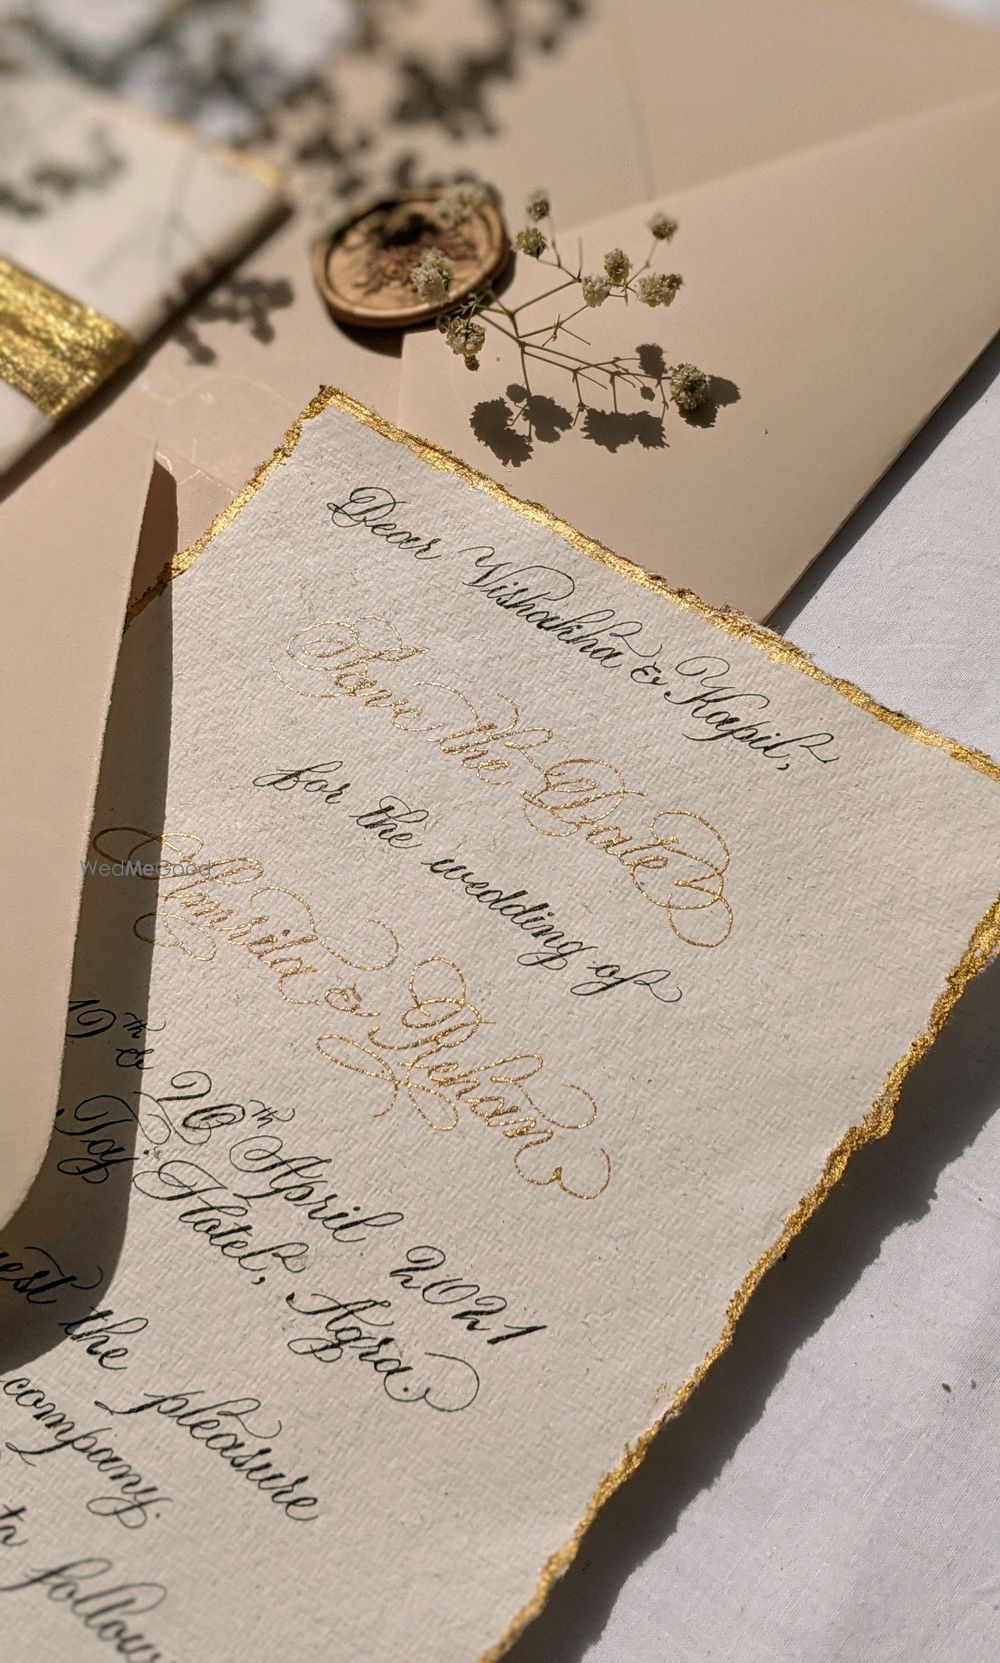 Dear Vishakha & Kapil,
Save the Date
for the wedding of
Amrita & Rehan
19th & 20th April 2021
Taj Hotel, Agra.
the pleasure
company.
to follow
WedMeGood